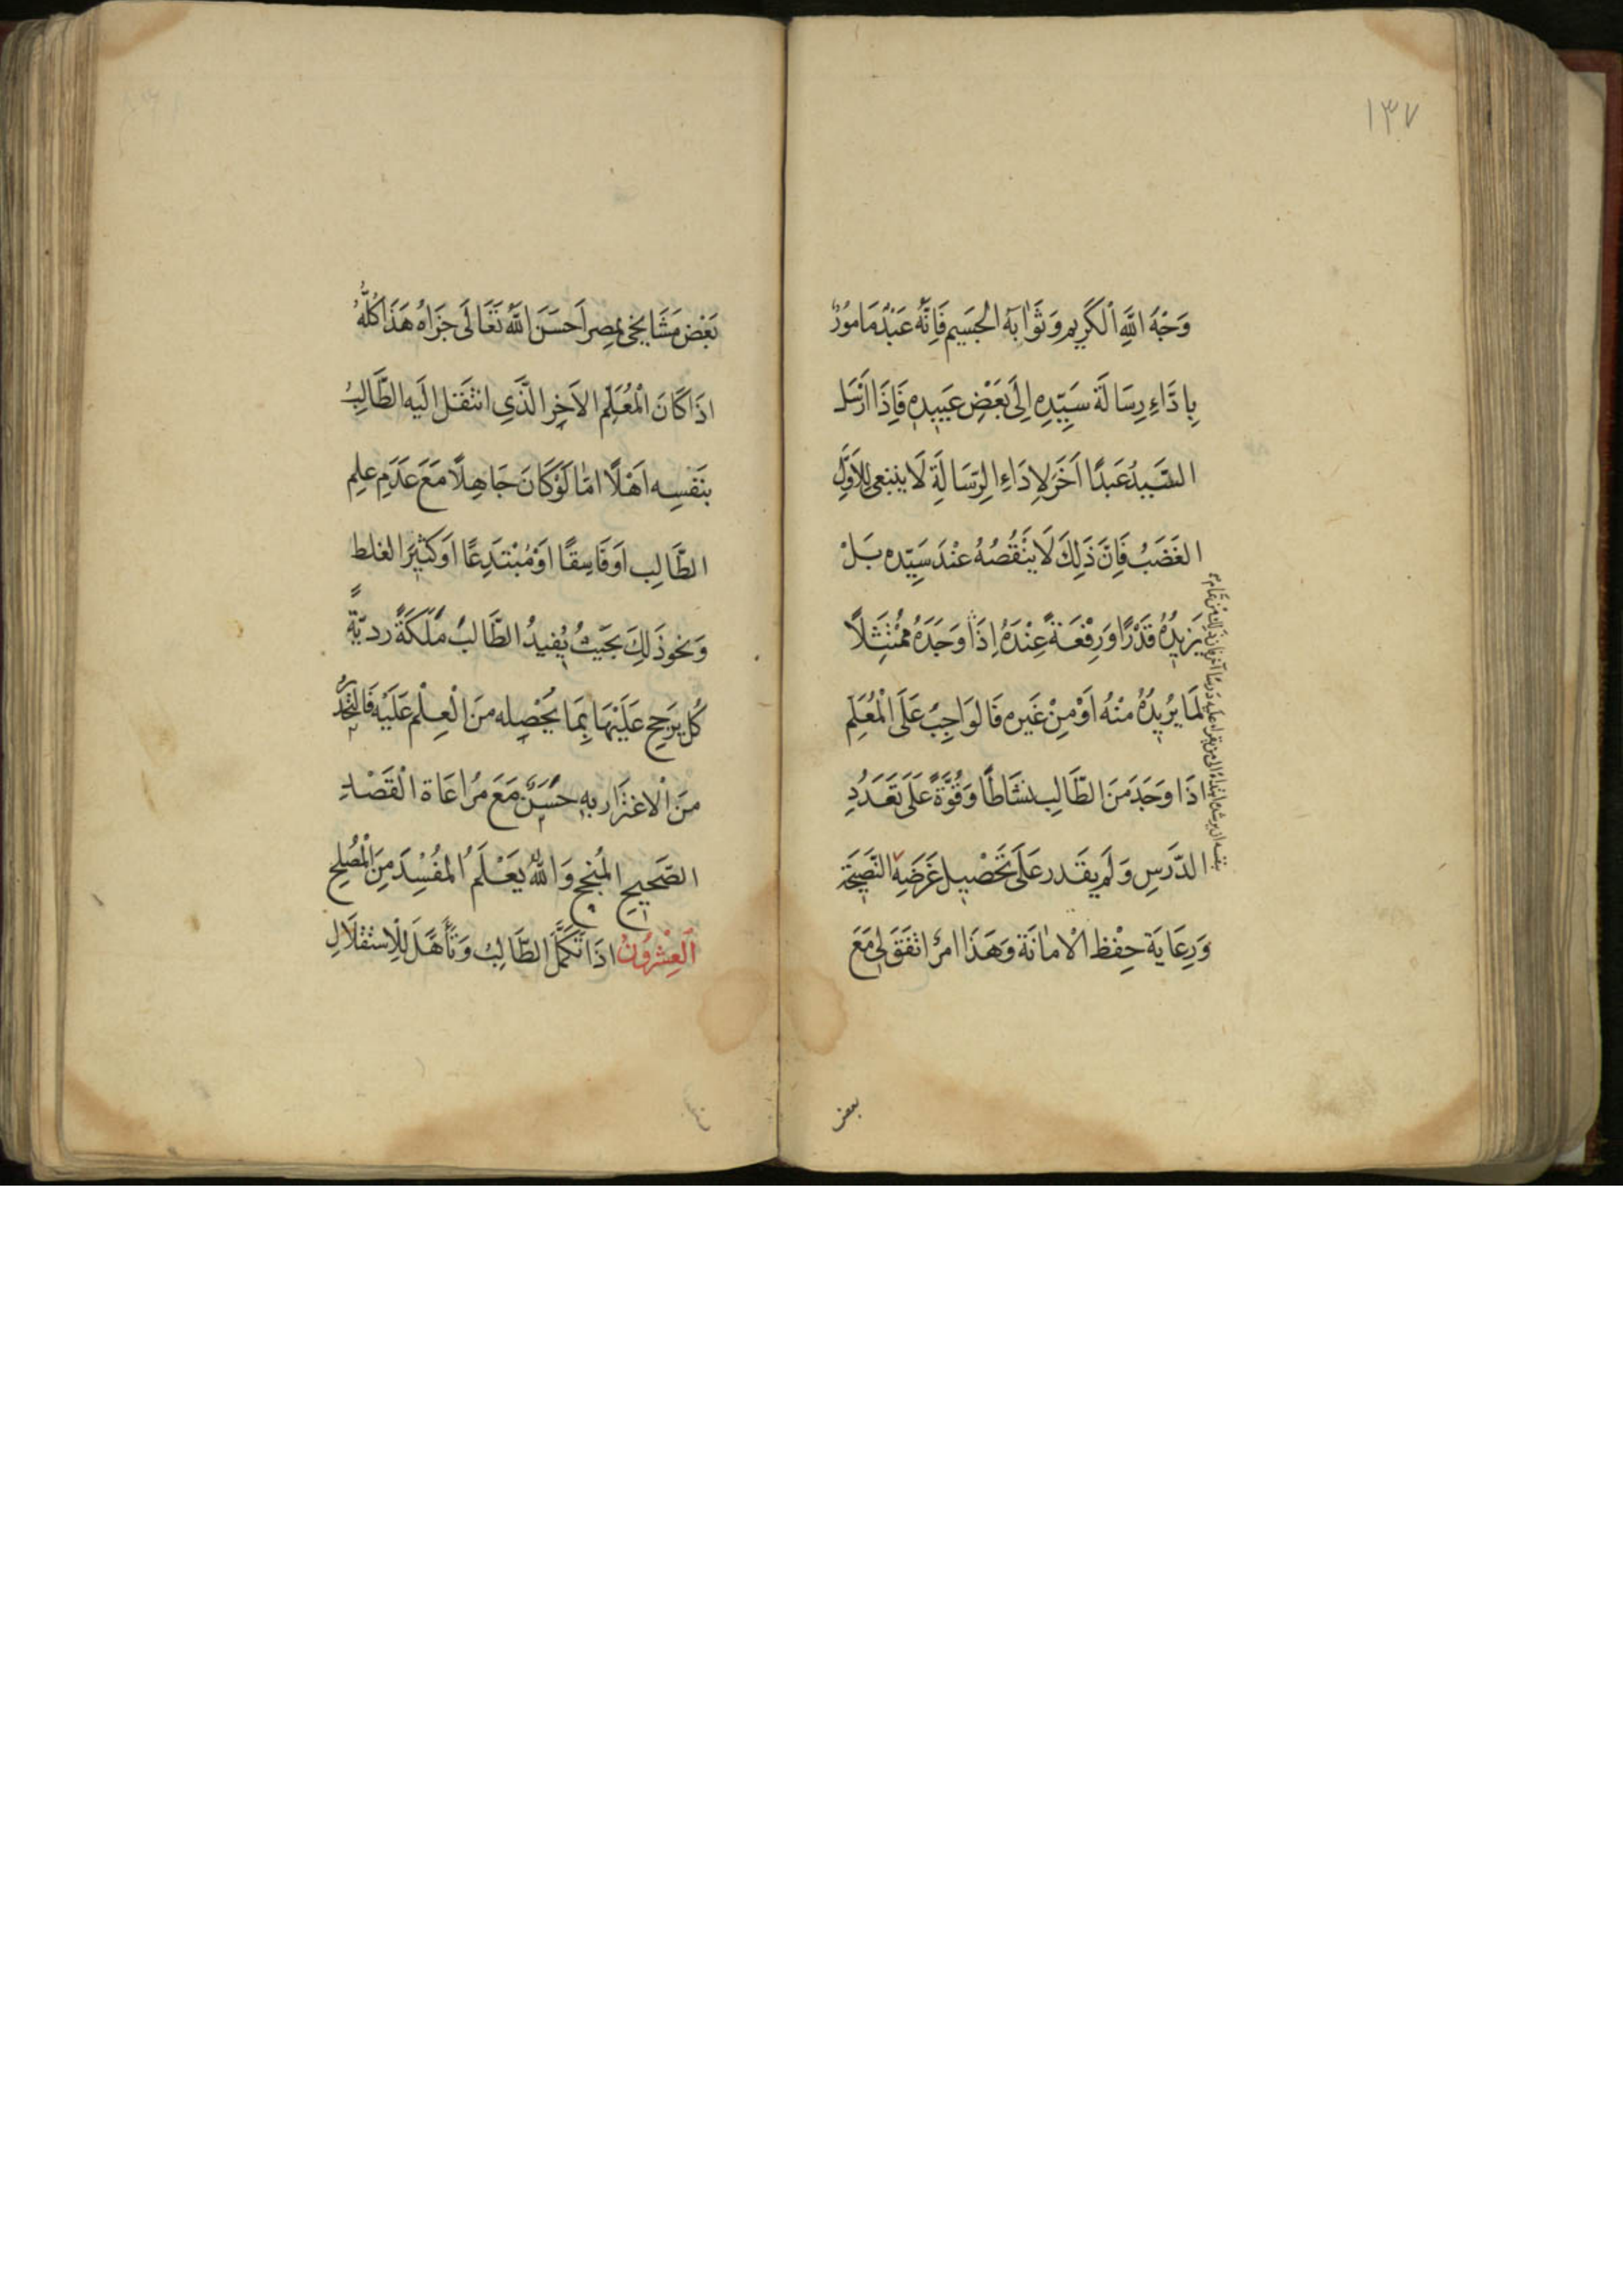 ١٣٧
وَجْهَ اللَّهِ الْكَرِيمِ وَثَوَابَهُ الْجَسِيمِ فَاِنَّهُ عَبْدٌ مَامُورٌ
بِادَّاءِ رِسَالَةَ سَيِّدِهِ اِلَى بَعْضِ عَبِيدِهِ فَاِذَا اَرْسَلَ
السَّيِّدُ عَبْدًا آخَرَ لِادَاءِ الرِّسَالَةِ لَا يَنْبَغِى لِلْاَوَّلِ
الغَضَبُ فَاِنَّ ذَلِكَ لَا يَنْقُصُهُ عِنْدَ سَيِّدِهِ بَلْ
يَزِيدُهُ قَدْرًا وَرِفْعَةً عِنْدَهُ اِذَا وَجَدَهُ مُمْتَثِلًا
لِمَا يُرِيدُهُ مِنْهُ اَوْ مِنْ غَيْرِهِ فَالوَاجِبُ عَلَى الْمُعَلِّمِ
اذَا وَجَدَ مِنَ الطَّالِبِ نَشَاطًا وَقُوَّةً عَلَى تَعَدُّدِ
الدَّرْسِ وَلَمْ يَقْدِر عَلَى تَحْصِيلِ غَرَضِهِ النَّصِيحَةِ
وَرِعَايَةِ حِفْظِ الْامَانَةِ وَهَذَا امرٌ اتَّفَقَ لِى مَعَ
بعض
بَعْضِ مَشَايِخِى بِمِصر اَحسَنَ اللَّهُ تَعَالَى جَزَاهُ هَذَا كُلُّهُ
اذَا كَانَ الْمُعَلِّمِ الآخِرِ الَّذَىِ انتَقَلَ اِلَيهِ الطَّالِبُ
بِنَفْسِهِ اَهْلًا امَّا لَوْ كَانَ جَاهِلًا مَعَ عَدَمِ عِلِم
الطَّالِبِ اَوفَاسِقًا اَوْ مُبْتَدِعًا اَوكَثِيرَ الغلط
وَنحوذَلِكَ بحَيثُ يُفِيدُ الطَّالِبُ مَلَكَةً رديّةً
كُل يَرجِح عَلَيْهَا بِمَا يُحْصِله مِنَ الْعِلْمِ عَلَيْهِ فَالتَّحَذُّرُ
مِنَ الْاغتَرَارِ بِهِ حَسَنٌ مَعَ مُرَاعَاةِ الْقَصْدِ
الصَّحِيحِ المُنجِحِ وَاللَّهُ يَعْلَمُ المُفْسِدَ مِنَ الْمُصْلِحِ
اَلعِشْرُونْ اذَا تَكَمَّلَ الطَّالِبُ وَتَأَهَّلَ لِلْاِسْتِقْلَالِ